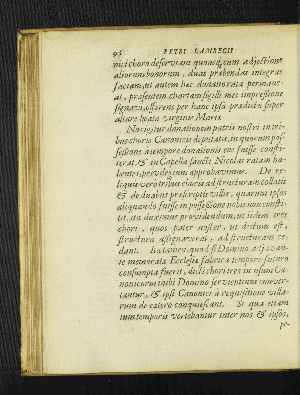 96 PETRI LAMBECII
nici choro deserviant quoucq, cum adjectione
aliorum bonorum, duas præbendas integras
faciam, ut autem hæc donatio rata permane-
at, præsentem chartam sigilli mei impressione
signavi, offerens per hanc ipsa prædicta super
altare beatæ virginis Mariæ.
Nos igitur donationem patris nostri in tri-
bus choris Canonicis deputatis, in quorum pos-
sessione a tempore donationis eos fuisse consti-
terat, & in Capella sancti Nicolai ratam ha-
bentes, privilegium approbavimus. De re-
liquis vero tribus choris ad structuram collatis
& de duabus præscriptis villis, quarum ipsos
aliquando fuisse in possessione nobis non consti-
tit, ita duximus providendum, ut iidem tres
chori, quos pater noster, ut dictum est,
structura assignaverat, ad structuram ce-
dant. Ita tamen, quod si Domino adjuvan-
te memorata Ecclesia fabrica tempore futuro
consumpta fuerit, dicti chori tres in usum Ca-
nonicorum nibi Domino servientium conver-
tantur, & ipsi Canonici a requisitione villa-
rum de cætero conquiescant. Si qua etiam
tum temporis vertebantur inter nos & ipsos,
pe-